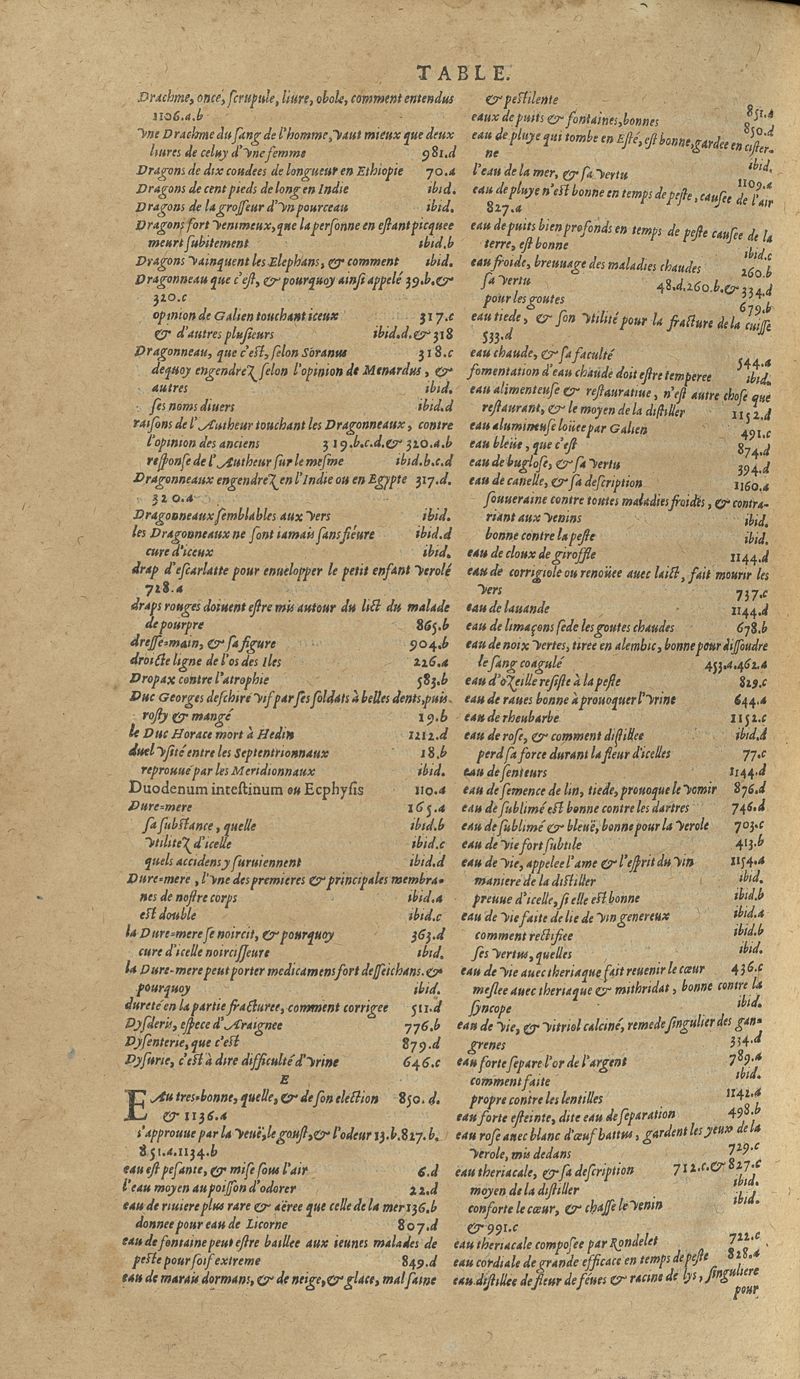 TABLE.
Drachme, once, scrupule, liure, obole, comment entendus
1106.a.b
Vne Drachme du sang de l'homme, vaut mieux que deux
liures de celuy d'vne femme 981.d
Dragons de dix coudees de longueur en Ethiopie 70.a
Dragons de cent pieds de long en Indie ibid.
Dragons de la grosseur d'vn pourceau ibid.
Dragons fort venimeux, que la personne en estant picquee
meurt subitement ibid.b
Dragons vainquent les Elephans, & comment ibid.
Dragonneau que c'est, & pourquoy ainsi appelé 39.b.&
320.c
opinion de Galien touchant iceux 317.c
& d'autres plusieurs ibid.d.& 318
Dragonneau, que c'est, selon Soranus 318.c
dequoy engendrez selon l'opinion de Menardus, &
autres ibid.
ses noms diuers ibid.d
raisons de l'Autheur touchant les Dragonneaux, contre
l'opinion des anciens 319.b.c.d.& 320.a.b
response de l'Autheur sur le mesme ibid.b.c.d
Dragonneaux engendrez en l'Indie ou en Egypte 317.d.
320.a
Dragonneaux semblables aux vers ibid.
les Dragonneaux ne sont iamais sans fiéure ibid.d
cure d'iceux ibid.
drap d'escarlatte pour enuelopper le petit enfant verolé
728.a
draps rouges doiuent estre mis autour du lict du malade
de pourpre 865.b
dresse-main, & sa figure 904.b
droicte ligne de l'os des Iles 226.a
Dropax contre l'atrophie 583.b
Duc Georges deschiré vif par ses soldats à belles dents, puis
rosty & mangé 19.b
le Duc Horace mort à Hedin 1212.d
duel vsité entre les Septentrionnaux 18.b
reprouué par les Meridionnaux ibid.
Duodenum intestinum ou Ecphysis 110.a
Dure-mere 165.a
sa substance, quelle ibid.b
vtilitez d'icelle ibid.c
quels accidens y suruiennent ibid.d
Dure-mere, l'vne des premieres & principales membra-
nes de nostre corps ibid.a
est double ibid.c
la Dure-mere se noircit, & pourquoy 363.d
cure d'icelle noircisseure ibid.
la Dure-mere peut porter medicamens fort desseichans.&
pourquoy ibid.
dureté en la partie fracturee, comment corrigee 511.d
Dysderis, espece d'Araignee 776.b
Dysenterie, que c'est 879.d
Dysurie, c'est à dire difficulté d'vrine 646.c
E
EAu tres-bonne, quelle, & de son election 850.d.
& 1136.a
s'approuue par la veuë, le goust, & l'odeur 13.b.827.b.
851.a.1134.b
eau est pesante, & mise sous l'air 6.d
l'eau moyen au poisson d'odorer 22.d
eau de riuiere plus rare & aëree que celle de la mer 136.b
donnee pour eau de Licorne 807.d
eau de fontaine peut estre baillee aux ieunes malades de
peste pour soif extreme 849.d
eau de marais dormans, & de neige, & glace, mal saine
& pestilente 851.a
eaux de puits & fontaines, bonnes 850.d
eau de pluye qui tombe en Esté, est bonne, gardee en cister-
ne ibid.
l'eau de la mer, & sa vertu 1109.a
eau de pluye n'est bonne en temps de peste, causee de l'air
827.a
eau de puits bien profonds en temps de peste causee de la
terre, est bonne ibid.c
eau froide, breuuage des maladies chaudes 260.b
sa vertu 48.d.260.b.& 334.d
pour les goutes 679.b
eau tiede, & son vtilité pour la fracture de la cuisse
533.d
eau chaude, & sa faculté 544.a
fomentation d'eau chaude doit estre temperee ibid.
eau alimenteuse & restauratiue, n'est autre chose que
restaurant, & le moyen de la distiller 1152.d
eau alumineuse loüee par Galien 491.c
eau bleüe, que c'est 874.d
eau de buglose, & sa vertu 394.d
eau de canelle, & sa description 1160.a
souueraine contre toutes maladies froides, & contra-
riant aux venins ibid.
bonne contre la peste ibid.
eau de cloux de giroffle 1144.d
eau de corrigiole ou renoüee auec laict, fait mourir les
vers 737.c
eau de lauande 1144.d
eau de limaçons sede les goutes chaudes 678.b
eau de noix vertes, tiree en alembic, bonne pour dissoudre
le sang coagulé 453.a.462.a
eau d'ozeille resiste à la peste 829.c
eau de raues bonne à prouoquer l'vrine 644.a
eau de rheubarbe 1152.c
eau de rose, & comment distillee ibid.d
perd sa force durant la fleur d'icelles 77.c
eau de senteurs 1144.d
eau de semence de lin, tiede, prouoque le vomir 876.d
eau de sublimé est bonne contre les dartres 746.d
eau de sublimé & bleuë, bonne pour la verole 703.c
eau de vie fort subtile 413.b
eau de vie, appelee l'ame & l'esprit du vin 1154.a
maniere de la distiller ibid.
preuue d'icelle, si elle est bonne ibid.b
eau de vie faite de lie de vin genereux ibid.a
comment rectifiee ibid.b
ses vertus, quelles ibid.
eau de vie auec theriaque fait reuenir le cœur 436.c
meslee auec theriaque & mithridat, bonne contre la
syncope ibid.
eau de vie, & vitriol calciné, remede singulier des gan-
grenes 334.d
eau forte separe l'or de l'argent 789.a
comment faite ibid.
propre contre les lentilles 1142.a
eau forte esteinte, dite eau de separation 498.b
eau rose auec blanc d'œuf battus, gardent les yeux de la
verole, mis dedans 729.c
eau theriacale, & sa description 712.c.& 827.c
moyen de la distiller ibid.
conforte le cœur, & chasse le venin ibid.
& 991.c
eau theriacale composee par Rondelet 722.c
eau cordiale de grande efficace en temps de peste 828.a
eau distillee de fleur de féues & racine de lys, singuliere
pour